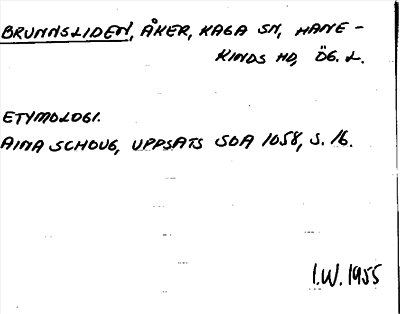 BRUNNSLIDEN, ÅKER, KAGA SN, HANE-
KINDS HD, ÖG. L.
ETYMOLOGI.
AINA SCHOUG, UPPSATS SOA 1058, S. 16.
I.W. 1955